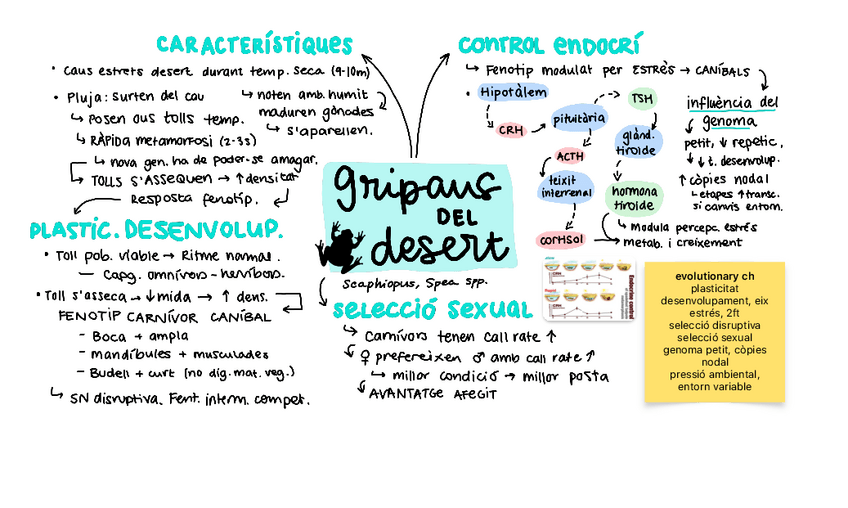 CARACTERÍSTIQUES
• Caus estrets desert durant temp. seca (9-10m)
• Pluja: surten del cau
↳ posen ous tolls temp.
↳ RÀPIDA metamorfosi (2-3s)
↳ nova gen. ha de poder-se amagar.
↳ TOLLS S'ASSEQUEN → ↑ densitat
Resposta fenotíp.
↳ noten amb. humit
maduren gònades
↳ s'aparellen.
PLASTIC. DESENVOLUP.
• Toll pob. viable → Ritme normal.
— Capg. omnívors - hervíbors.
• Toll s'asseca → ↓ mida → ↑ dens.
FENOTIP CARNÍVOR CANÍBAL
- Boca + ampla
- mandíbules + musculades
- Budell + curt (no dig. mat. veg.)
↳ SN disruptiva. Fent. interm. compet.
gripaus
DEL
desert
Scaphiopus, Spea spp.
selecció sexual
↳ Carnívors tenen call rate ↑
↳ ♀ prefereixen ♂ amb call rate ↑
↳ millor condició → millor posta
↳ AVANTATGE AFEGIT
CONTROL ENDOCRÍ
↳ Fenotip modulat per ESTRÈS → CANÍBALS
• Hipotàlem
CRH
pituïtària
ACTH
teixit
interrenal
cortisol
TSH
glànd.
tiroide
hormona
tiroide
↳ Modula percepc. estrés
metab. i creixement
influència del
genoma
petit, ↓ repetic,
↓ t. desenvolup.
↑ còpies nodal
↳ etapes ↑ transc.
si canvis entorn.
Endocrine control
evolutionary ch
plasticitat
desenvolupament, eix
estrés, 2ft
selecció disruptiva
selecció sexual
genoma petit, còpies
nodal
pressió ambiental,
entorn variable